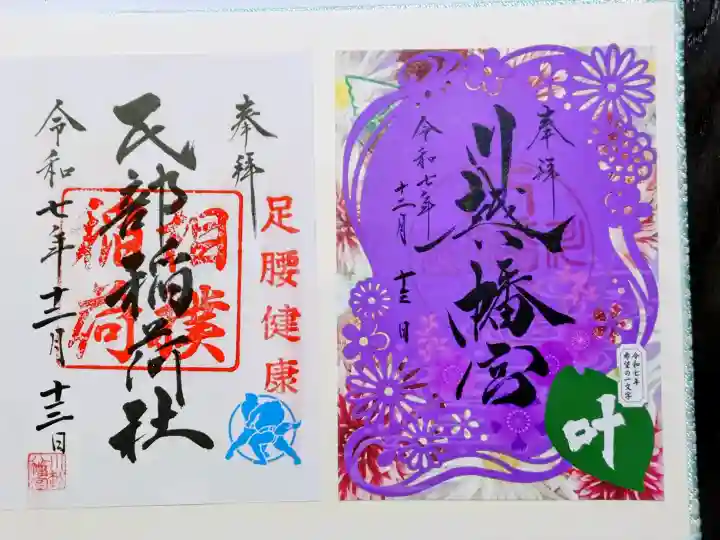 奉拝
相撲
稲荷
民部稲荷社
令和七年十二月十三日
足腰健康
奉拝
川越八幡宮
令和七年
十二月十三日
令和七年
希望の一文字
叶